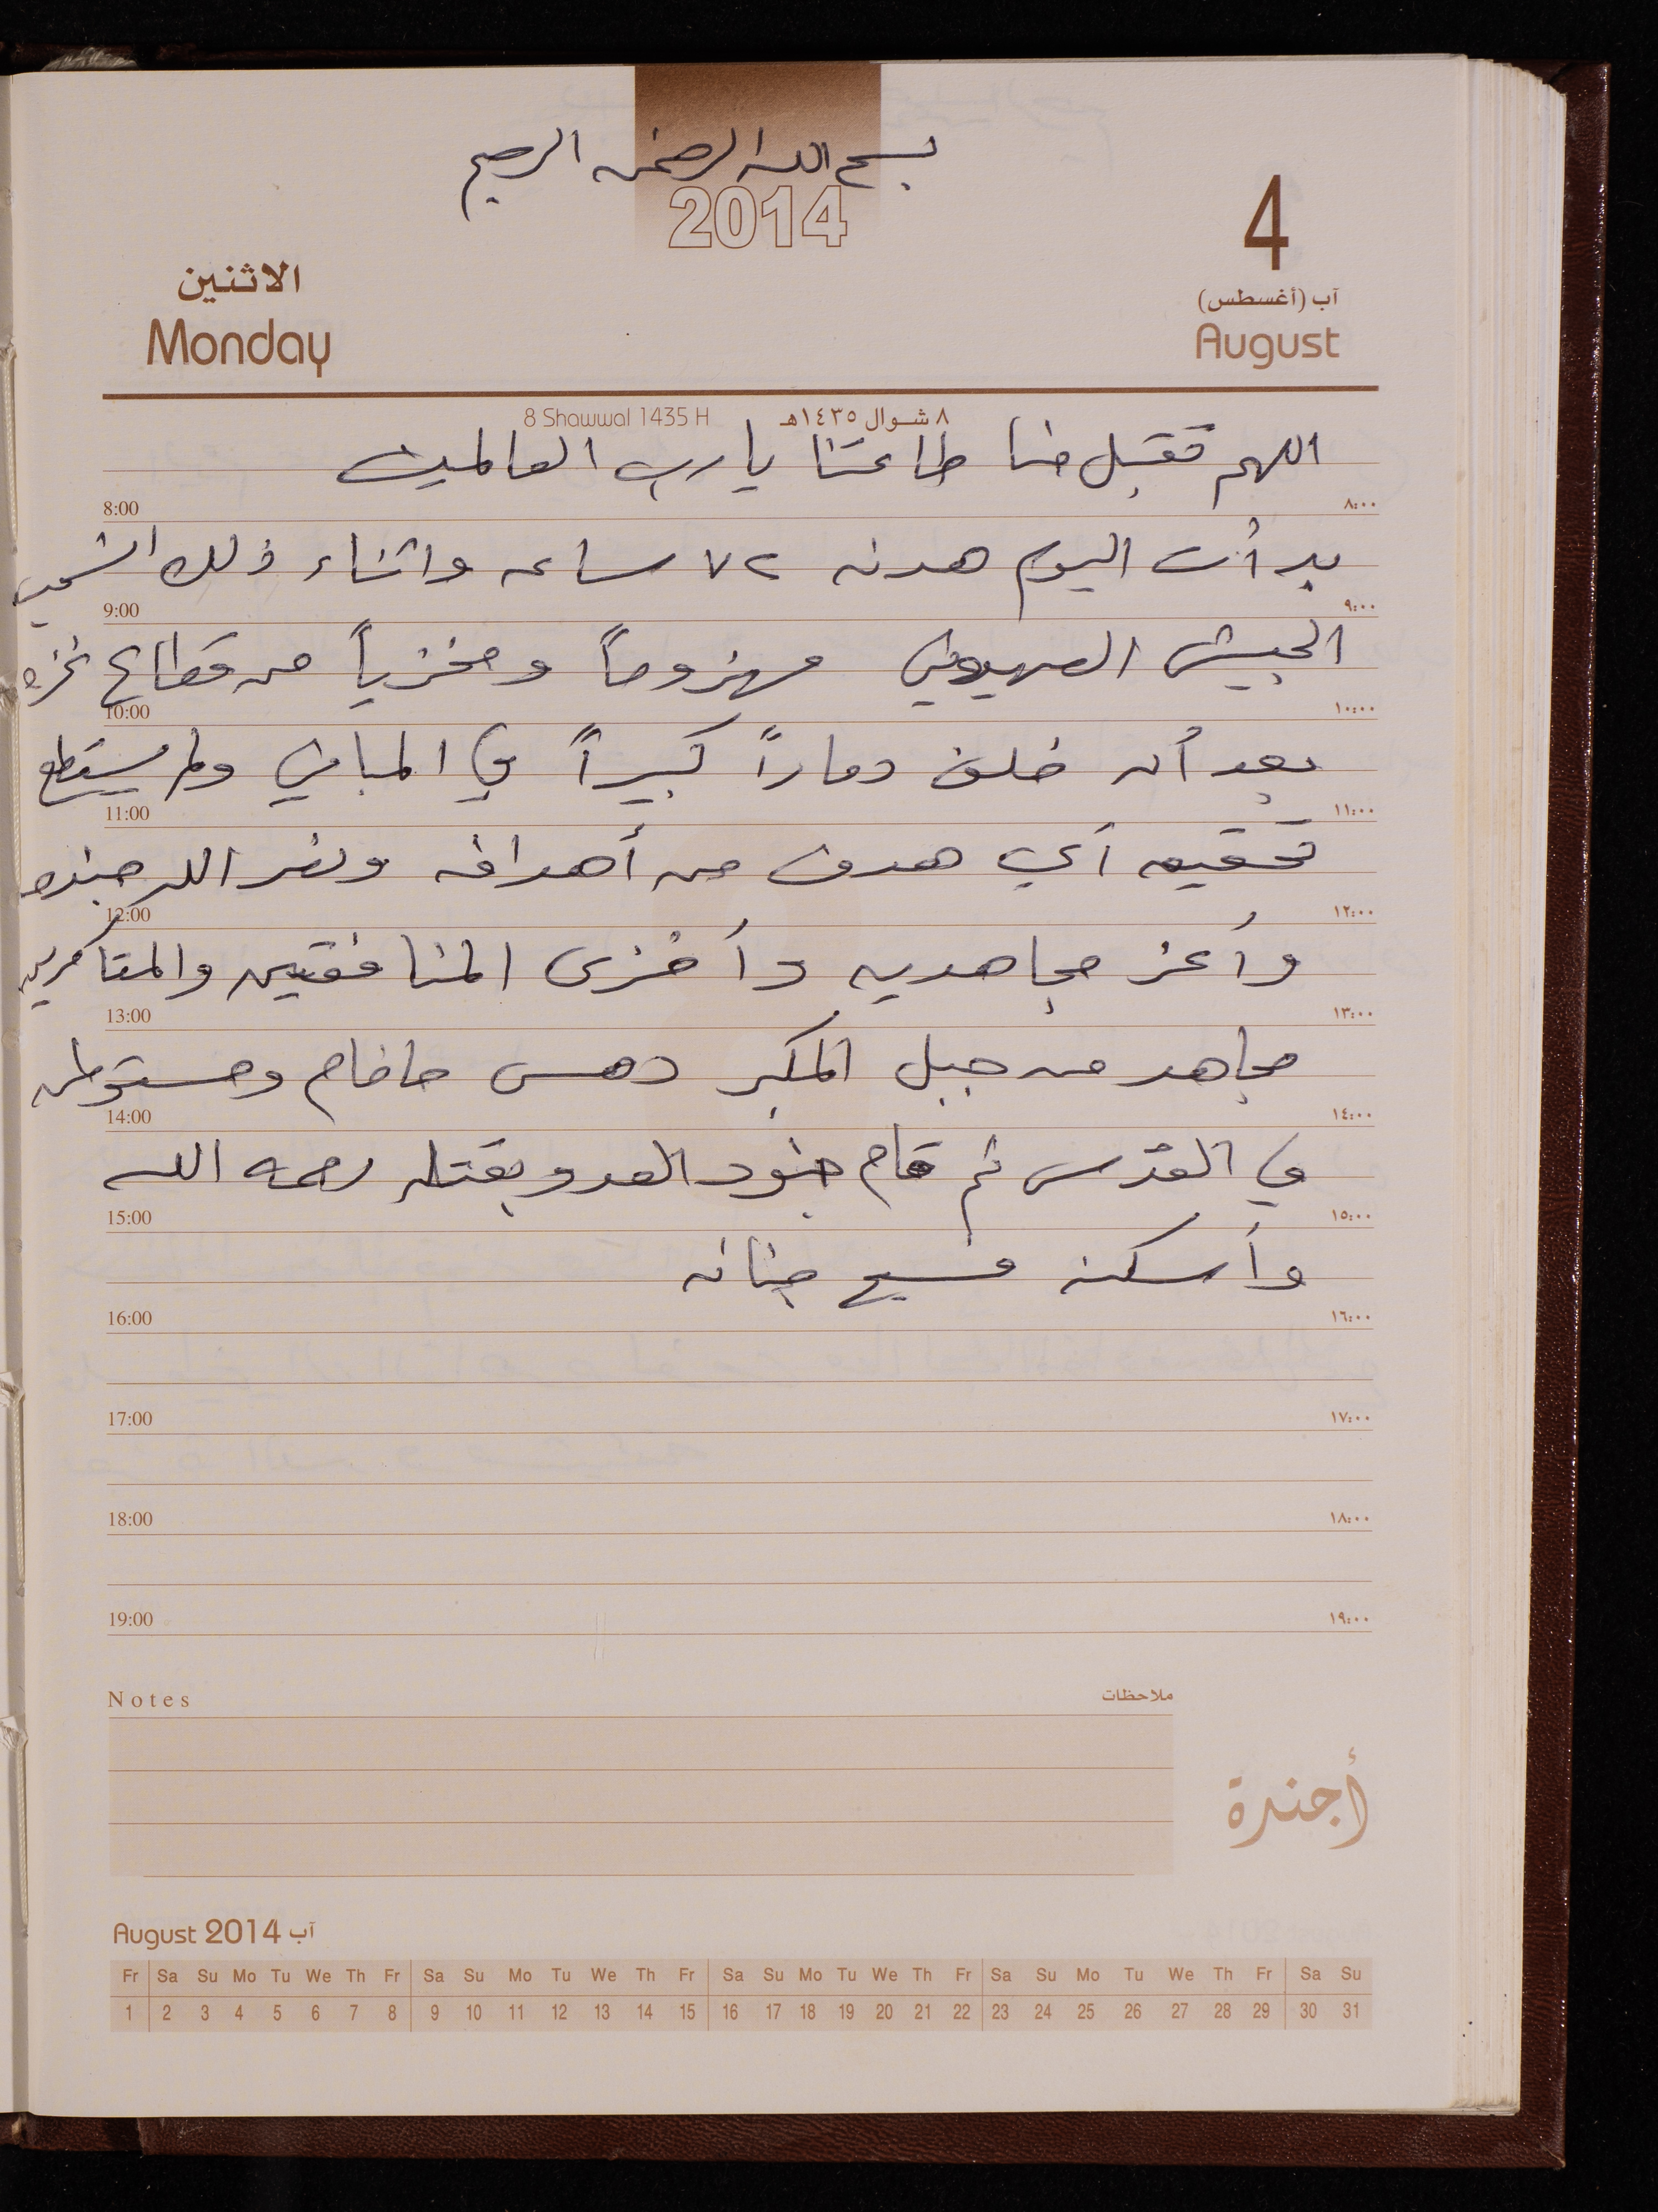 بسم الله الرحمن الرحيم
2014
4
الاثنين
آب (أغسطس)
Monday
August
8 Shawwal 1435 H ٨ شوال ١٤٣٥هـ
اللهم تقبل منا طاعتنا يا رب العالمين
8:00 ٨:٠٠
بدأت اليوم هدنه ٧٢ ساعه واثناء ذلك انسحب
9:00 ٩:٠٠
الجيش الصهيوني مهزوماً ومخزياً من قطاع غزه
10:00 ١٠:٠٠
بعد أن خلف دماراً كبيراً في المباني ولم يستطع
11:00 ١١:٠٠
تحقيق أي هدف من أهدافه ونصر الله جنده
12:00 ١٢:٠٠
وأعز مجاهديه وأخزى المنافقين والمتآمرين
13:00 ١٣:٠٠
مجاهد من جبل المكبر دهس حاخام ومستوطن
14:00 ١٤:٠٠
في القدس ثم قام جنود العدو بقتله رحمه الله
15:00 ١٥:٠٠
وأسكنه فسيح جنانه
16:00 ١٦:٠٠
17:00 ١٧:٠٠
18:00 ١٨:٠٠
19:00 ١٩:٠٠
Notes ملاحظات
أجندة
August 2014 آب
Fr Sa Su Mo Tu We Th Fr Sa Su Mo Tu We Th Fr Sa Su Mo Tu We Th Fr Sa Su Mo Tu We Th Fr Sa Su
1 2 3 4 5 6 7 8 9 10 11 12 13 14 15 16 17 18 19 20 21 22 23 24 25 26 27 28 29 30 31